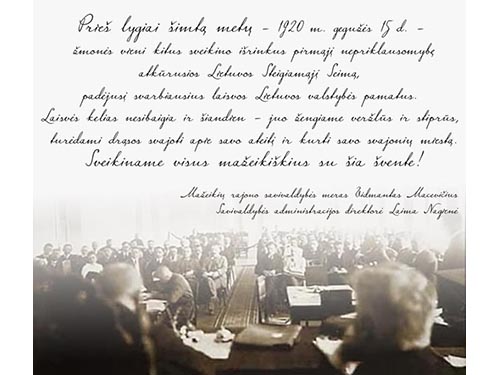 Prieš lygiai šimtą metų – 1920 m. gegužės 15 d. –
žmonės vieni kitus sveikino išrinkus pirmąjį nepriklausomybę
atkūrusios Lietuvos Steigiamąjį Seimą,
padėjusį svarbiausius laisvos Lietuvos valstybės pamatus.
Laisvės kelias nesibaigia ir šiandien – juo žengiame veržlūs ir stiprūs,
turėdami drąsos svajoti apie savo ateitį ir kurti savo svajonių miestą.
Sveikiname visus mažeikiškius su šia švente!
Mažeikių rajono savivaldybės meras Vidmantas Macevičius
Savivaldybės administracijos direktorė Laima Nagienė